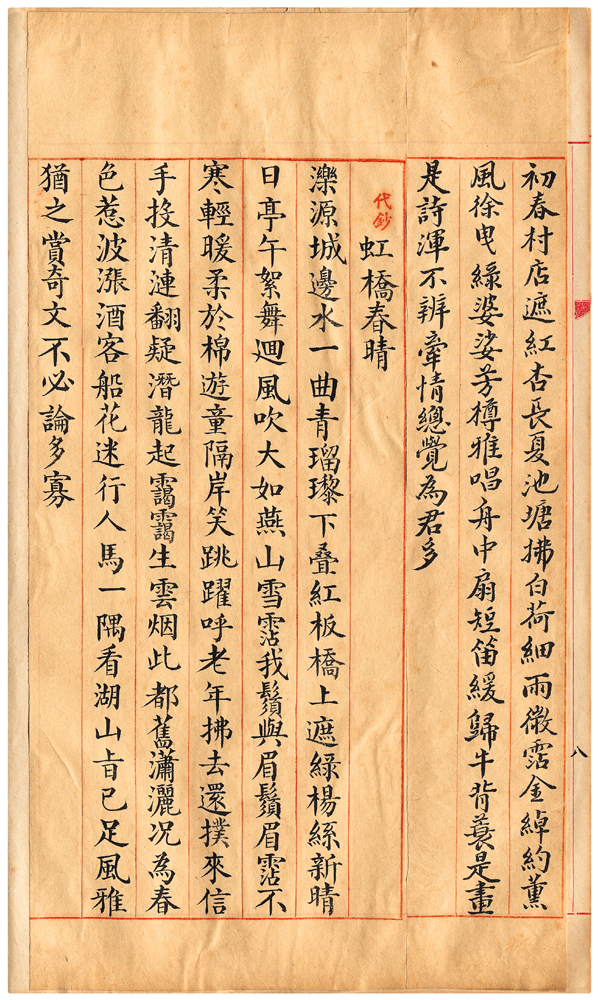 初春村店遮紅杏長夏池塘拂白荷細雨微霑金綽約薰
風徐曳綠婆娑芳樽雅唱舟中扇短笛緩歸牛背蓑是畫
是詩渾不辨牽情總覺為君多
代鈔
虹橋春晴
濼源城邊水一曲青瑠瓈下叠紅板橋上遮綠楊絲新晴
日亭午絮舞迴風吹大如燕山雪霑我鬚與眉鬚眉霑不
寒輕暖柔於棉遊童隔岸笑跳躍呼老年拂去還撲來信
手投清漣翻疑潛龍起靄靄生雲烟此都舊瀟灑况為春
色惹波漲酒客船花迷行人馬一隅看湖山旨已足風雅
猶之賞奇文不必論多寡
八